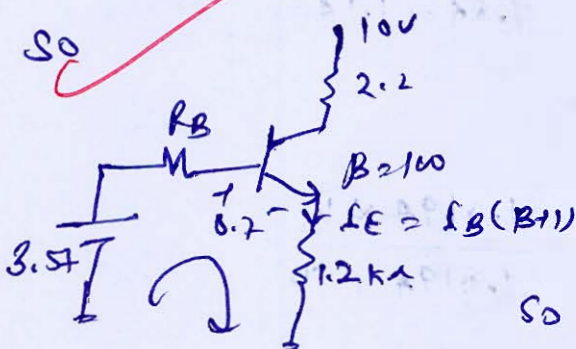 SO
10V
2.2
RB
β=100
+
0.7 -
IE = IB(β+1)
3.57
1.2KΩ
SO